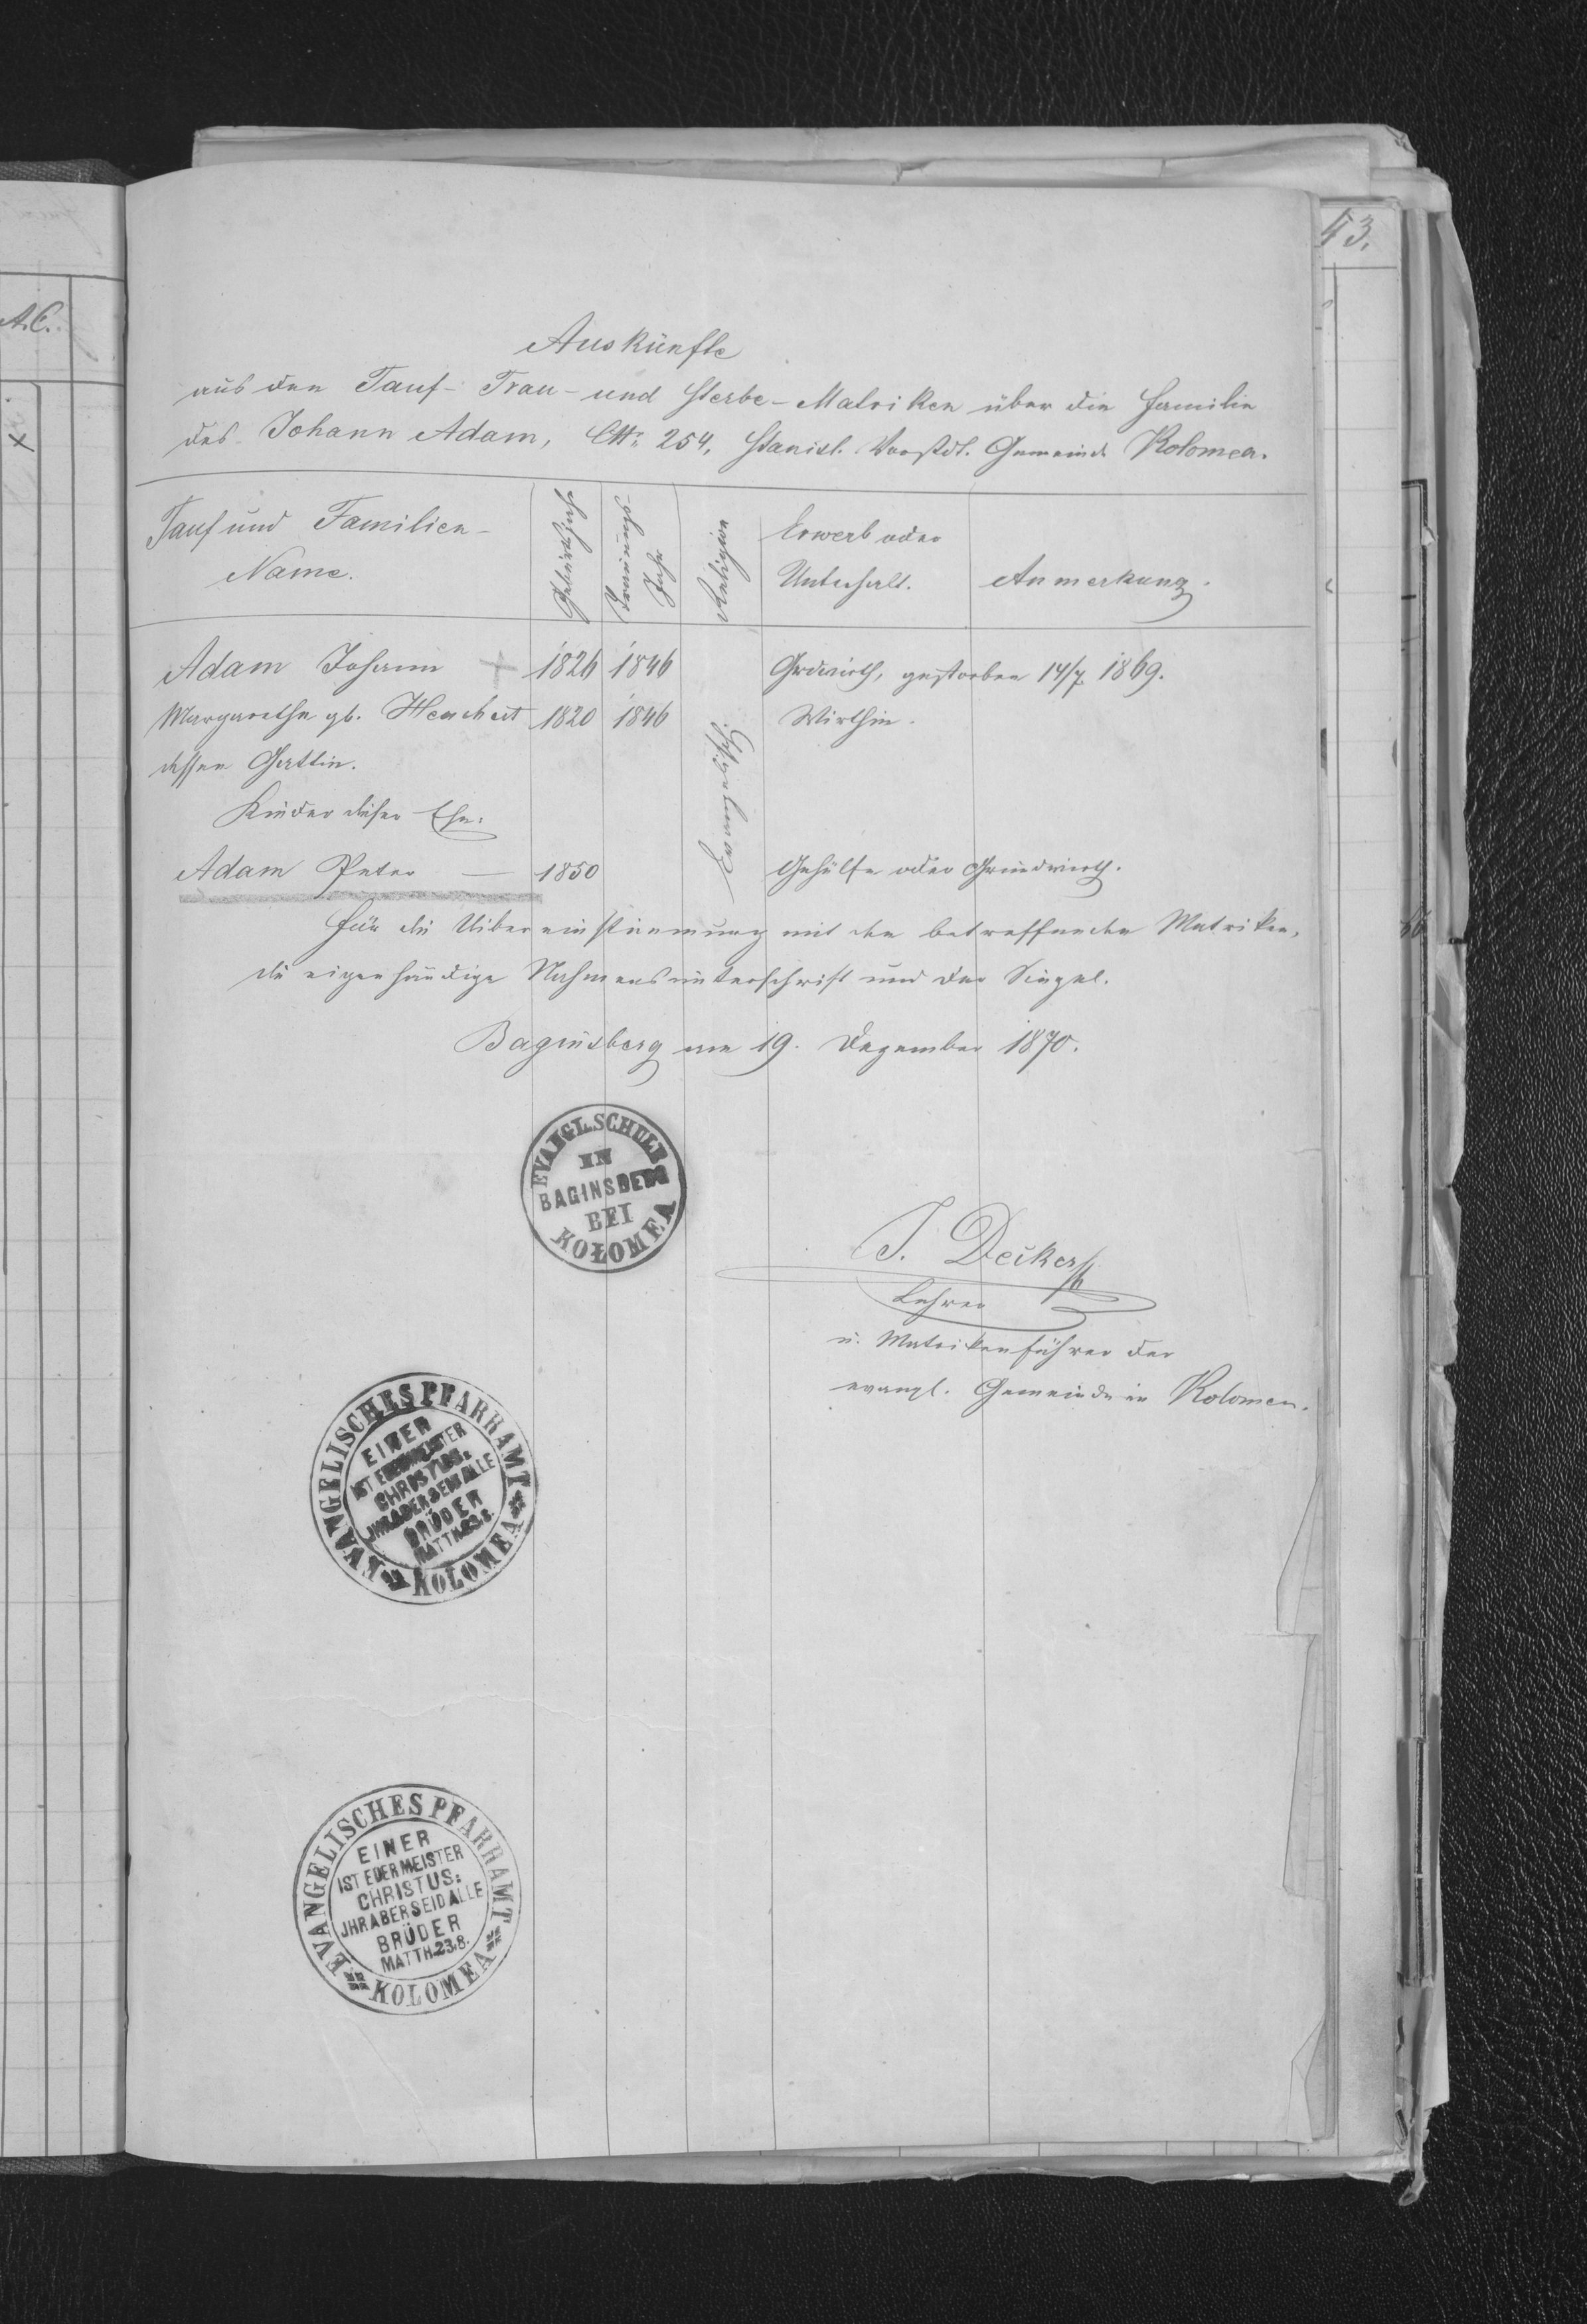 A.C.
43.
Auskünfte
aus den Tauf- Trau- und Sterbe-Matriken über die Familie
des Johann Adam, CNr: 254, Stanisl. Vorstdt. Gemeinde Kolomea.
Tauf und Familien-
Name.
Geburtsjahr
Trauungs-
Jahr
Religion
Erwerb oder
Unterhalt.
Anmerkung.
Adam Johann + 1826 1846 Grdwirth, gestorben 14/7 1869.
Margaretha gb. 1820 1846 Wirthin.
dessen Gattin.
Evangelisch.
Kinder dieser Ehe:
Adam Peter — 1850 Gehülfe oder Grundwirth.
Für die Uibereinstimmung mit den betreffenden Matriken,
die eigenhändige Nahmensunterschrift und der Siegel.
Baginsberg am 19. Dezember 1870.
EVANGL. SCHULE
IN
BAGINSBERG
BEI
KOŁOMEA
J. Decker
Lehrer
u. Matrikenführer der
evangl. Gemeinde in Kolomea.
EVANGELISCHES PFARRAMT
EINER
IST EUER MEISTER
CHRISTUS:
JHR ABER SEID ALLE
BRÜDER
MATTH. 23,8.
KOLOMEA
EVANGELISCHES PFARRAMT
EINER
IST EUER MEISTER
CHRISTUS:
JHR ABER SEID ALLE
BRÜDER
MATTH. 23,8.
KOLOMEA